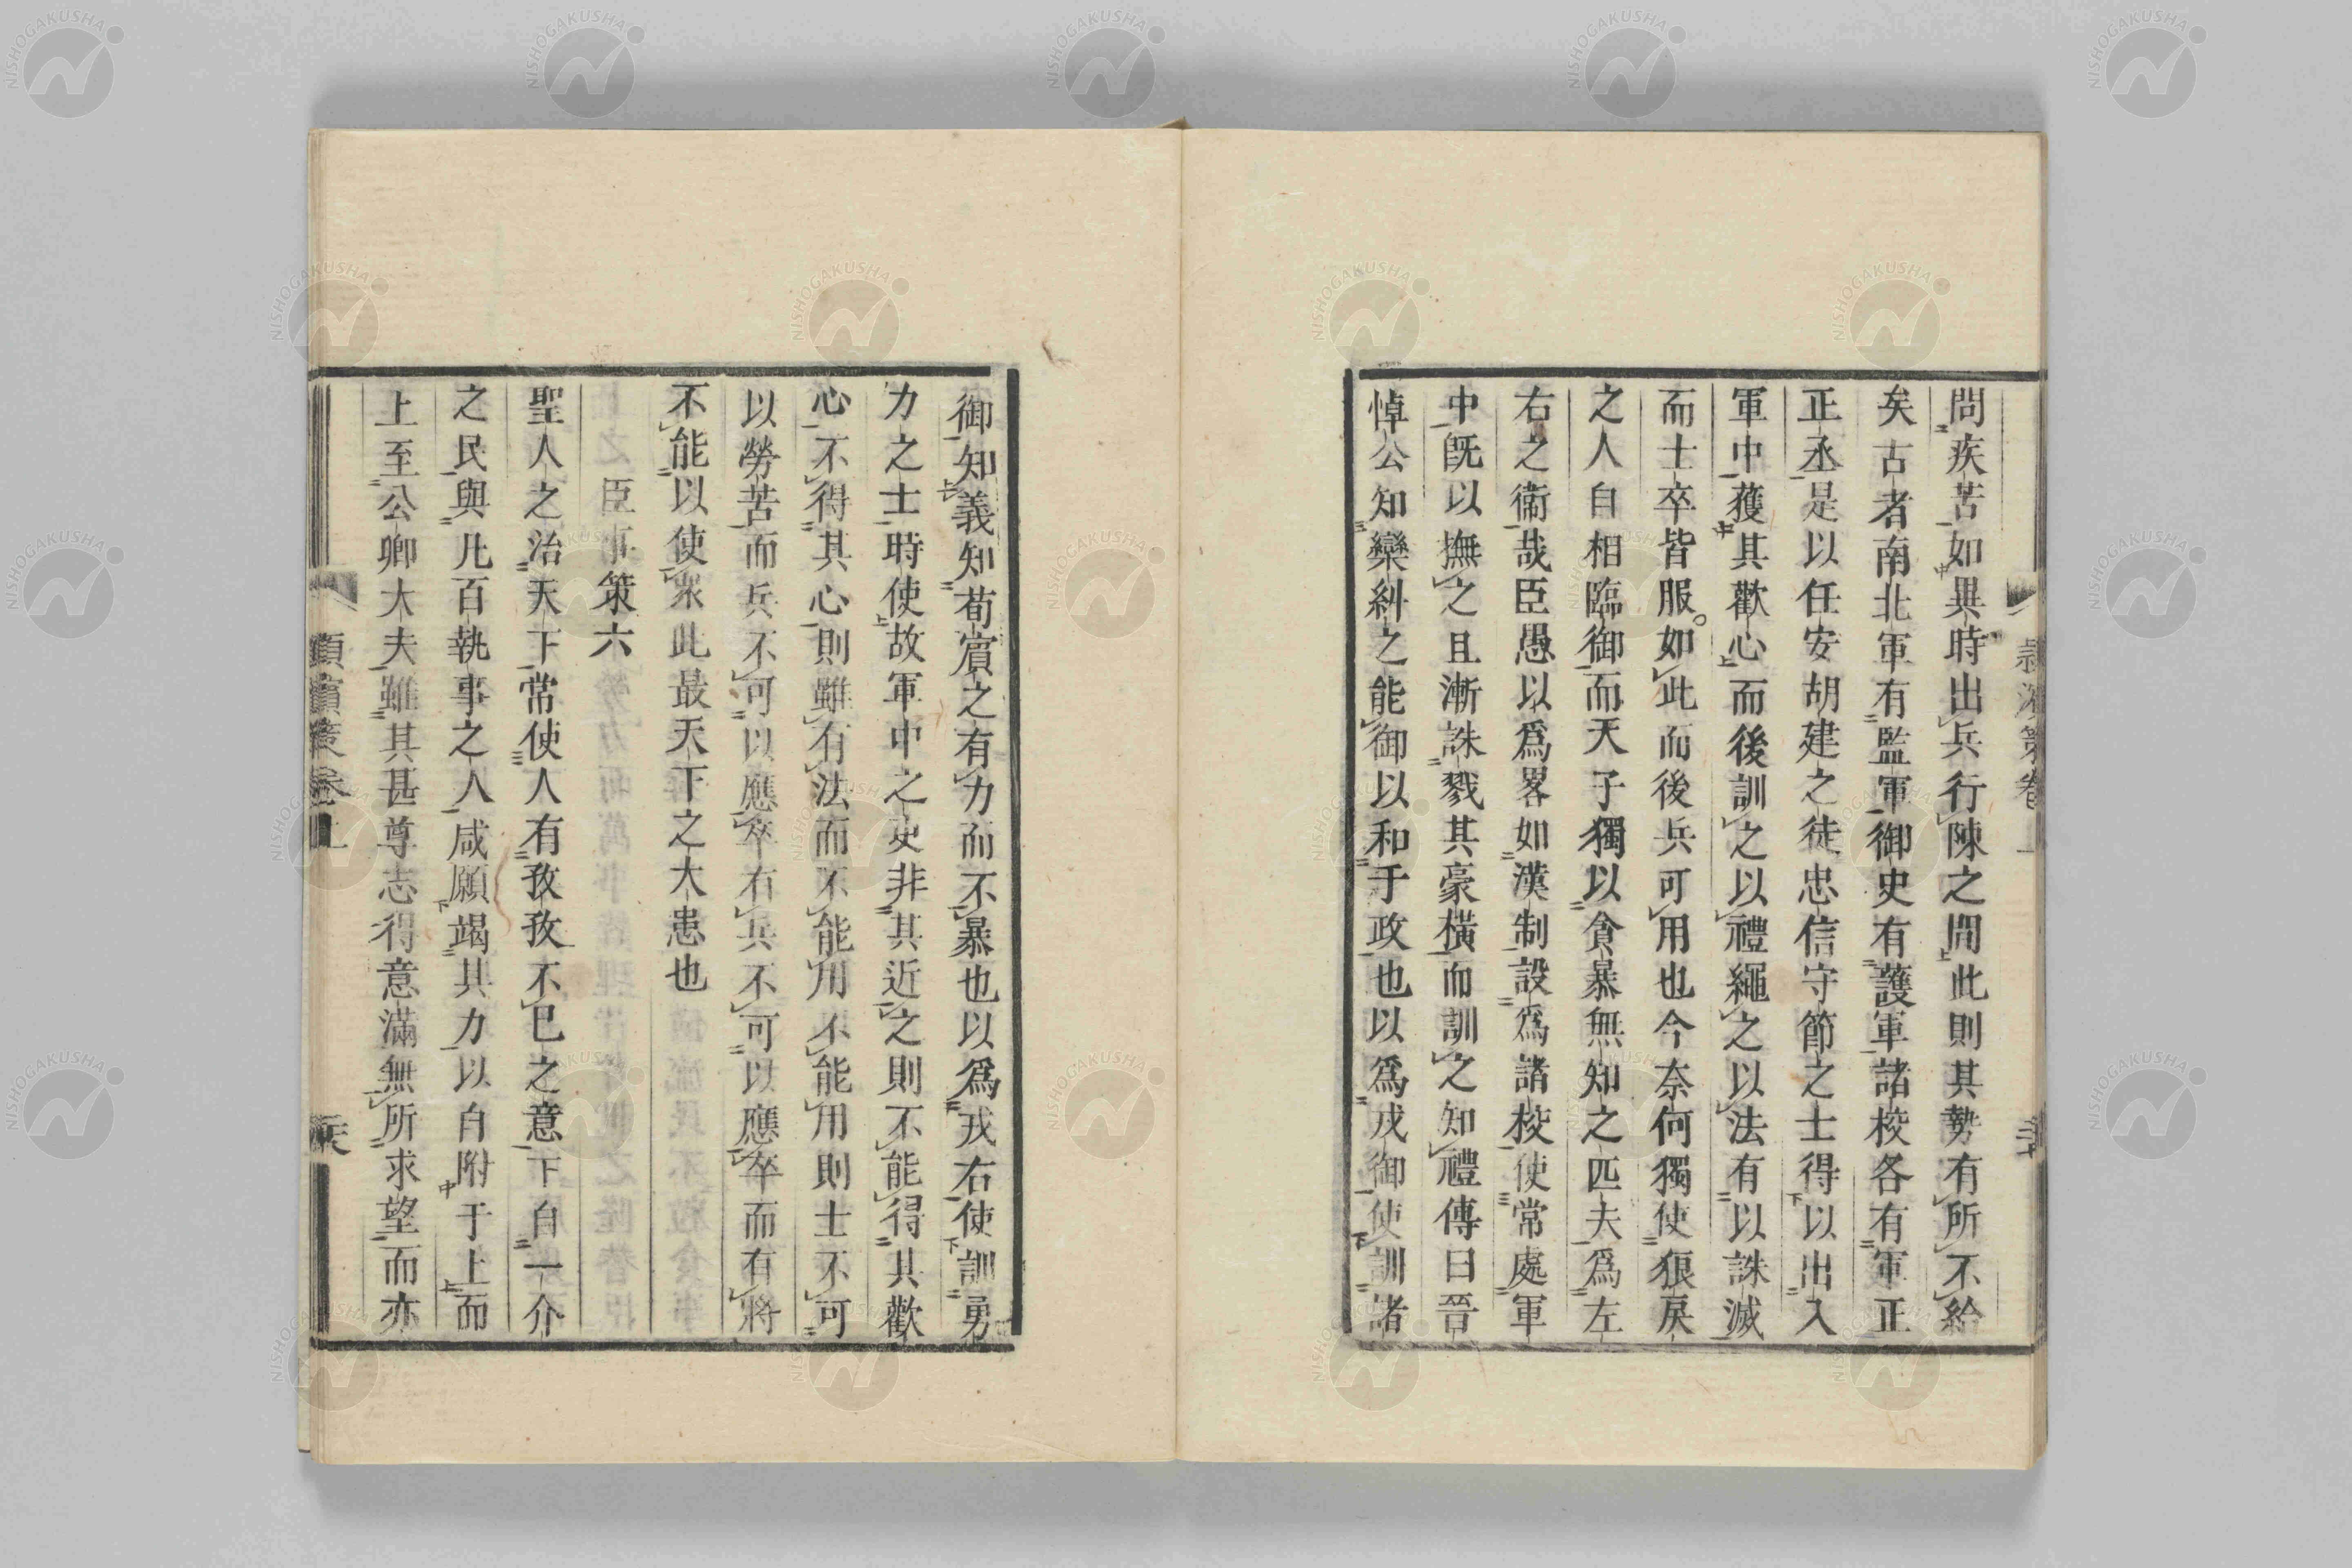 問疾苦如異時出兵行陳之間此則其勢有所不給
矣古者南北軍有監軍御史有護軍諸校各有軍正
正丞是以任安胡建之徒忠信守節之士得以出入
軍中獲其歡心而後訓之以禮繩之以法有以誅滅
而士卒皆服。如此而後兵可用也今奈何獨使狠戾
之人自相臨御而天子獨以貪暴無知之匹夫爲左
右之衞哉臣愚以爲畧如漢制設爲諸校使常處軍
中旣以撫之且漸誅戮其豪橫而訓之知禮傳曰晉
悼公知欒糾之能御以和于政也以爲戎御使訓諸
御知義知荀賔之有力而不暴也以爲戎右使訓勇
力之士時使故軍中之吏非其近之則不能得其歡
心不得其心則雖有法而不能用不能用則士不可
以勞苦而兵不可以應卒有兵不可以應卒而有將
不能以使衆此最天下之大患也
臣事策六
聖人之治天下常使人有孜孜不已之意下自一介
之民與凡百執事之人咸願竭其力以自附于上而
上至公卿大夫雖其甚尊志得意滿無所求望而亦
潁濱策卷上
NISHOGAKUSHA